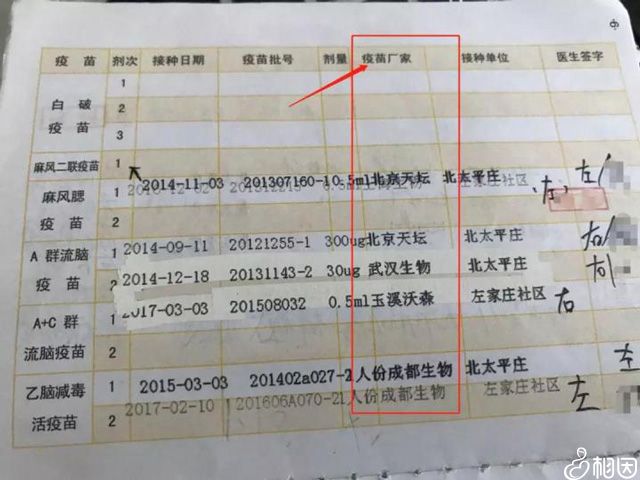 疫苗 剂次 接种日期 疫苗批号 剂量 疫苗厂家 接种单位 医生签字
白破疫苗 1
2
3
麻风二联疫苗 1 2014-11-03 201307160-1 0.5ml 北京天坛 北太平庄 左
麻风腮疫苗 1 左家庄社区 左
2
A群流脑疫苗 1 2014-09-11 20121255-1 300ug 北京天坛 北太平庄 右
2 2014-12-18 20131143-2 30ug 武汉生物 北太平庄 右
A+C群流脑疫苗 1 2017-03-03 201508032 0.5ml 玉溪沃森 左家庄社区 右
2
乙脑减毒活疫苗 1 2015-03-03 201402a027-2 1人份 成都生物 北太平庄 左
2 2017-02-10 201606A070-2 1人份 成都生物 左家庄社区 左
相因